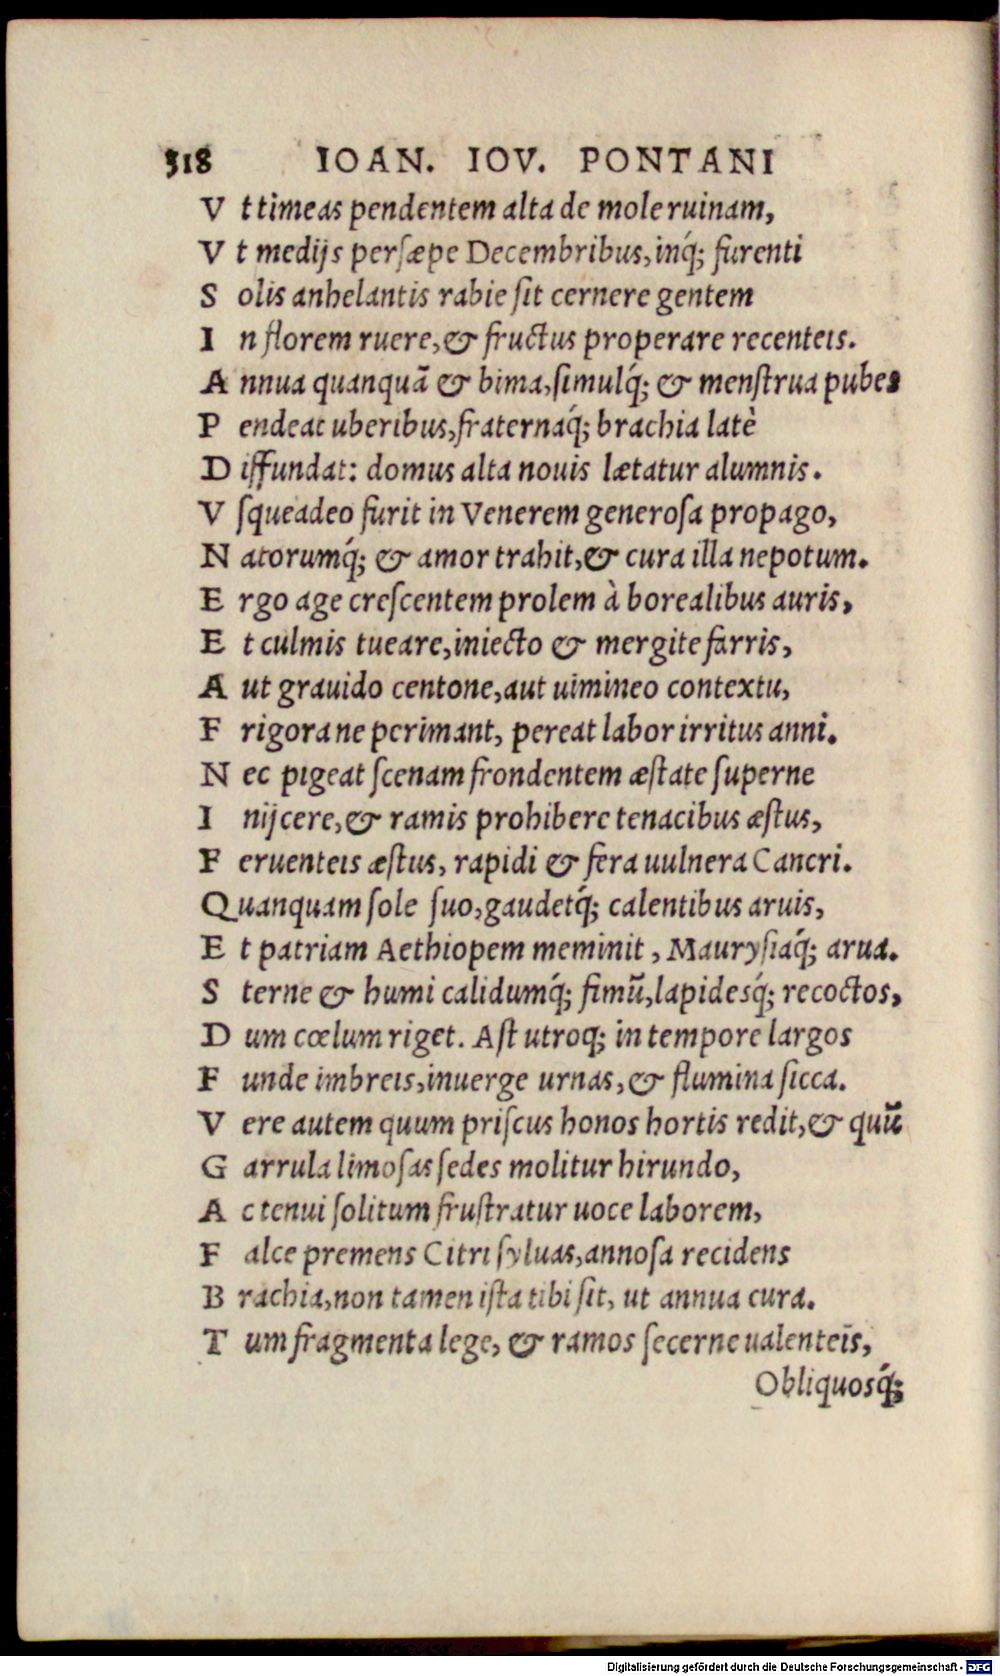 318 IOAN. IOV. PONTANI
V t timeas pendentem alta de mole ruinam,
V t medijs persæpe Decembribus, inq́; furenti
S olis anhelantis rabie sit cernere gentem
I n florem ruere, & fructus properare recenteis.
A nnua quanquã & bima, simulq́; & menstrua pubes
P endeat uberibus, fraternaq́; brachia latè
D iffundat: domus alta nouis lætatur alumnis.
V squeadeo furit in Venerem generosa propago,
N atorumq́; & amor trahit, & cura illa nepotum.
E rgo age crescentem prolem à borealibus auris,
E t culmis tueare, iniecto & mergite farris,
A ut grauido centone, aut uimineo contextu,
F rigora ne perimant, pereat labor irritus anni.
N ec pigeat scenam frondentem æstate superne
I nijcere, & ramis prohibere tenacibus æstus,
F eruenteis æstus, rapidi & fera uulnera Cancri.
Quanquam sole suo, gaudetq́; calentibus aruis,
E t patriam Aethiopem meminit, Maurysiaq́; arua.
S terne & humi calidumq́; fimũ, lapidesq́; recoctos,
D um cœlum riget. Ast utroq; in tempore largos
F unde imbreis, inuerge urnas, & flumina sicca.
V ere autem quum priscus honos hortis redit, & quũ
G arrula limosas sedes molitur hirundo,
A c tenui solitum frustratur uoce laborem,
F alce premens Citri syluas, annosa recidens
B rachia, non tamen ista tibi sit, ut annua cura.
T um fragmenta lege, & ramos secerne ualenteis,
Obliquosq́;
Digitalisierung gefördert durch die Deutsche Forschungsgemeinschaft - DFG